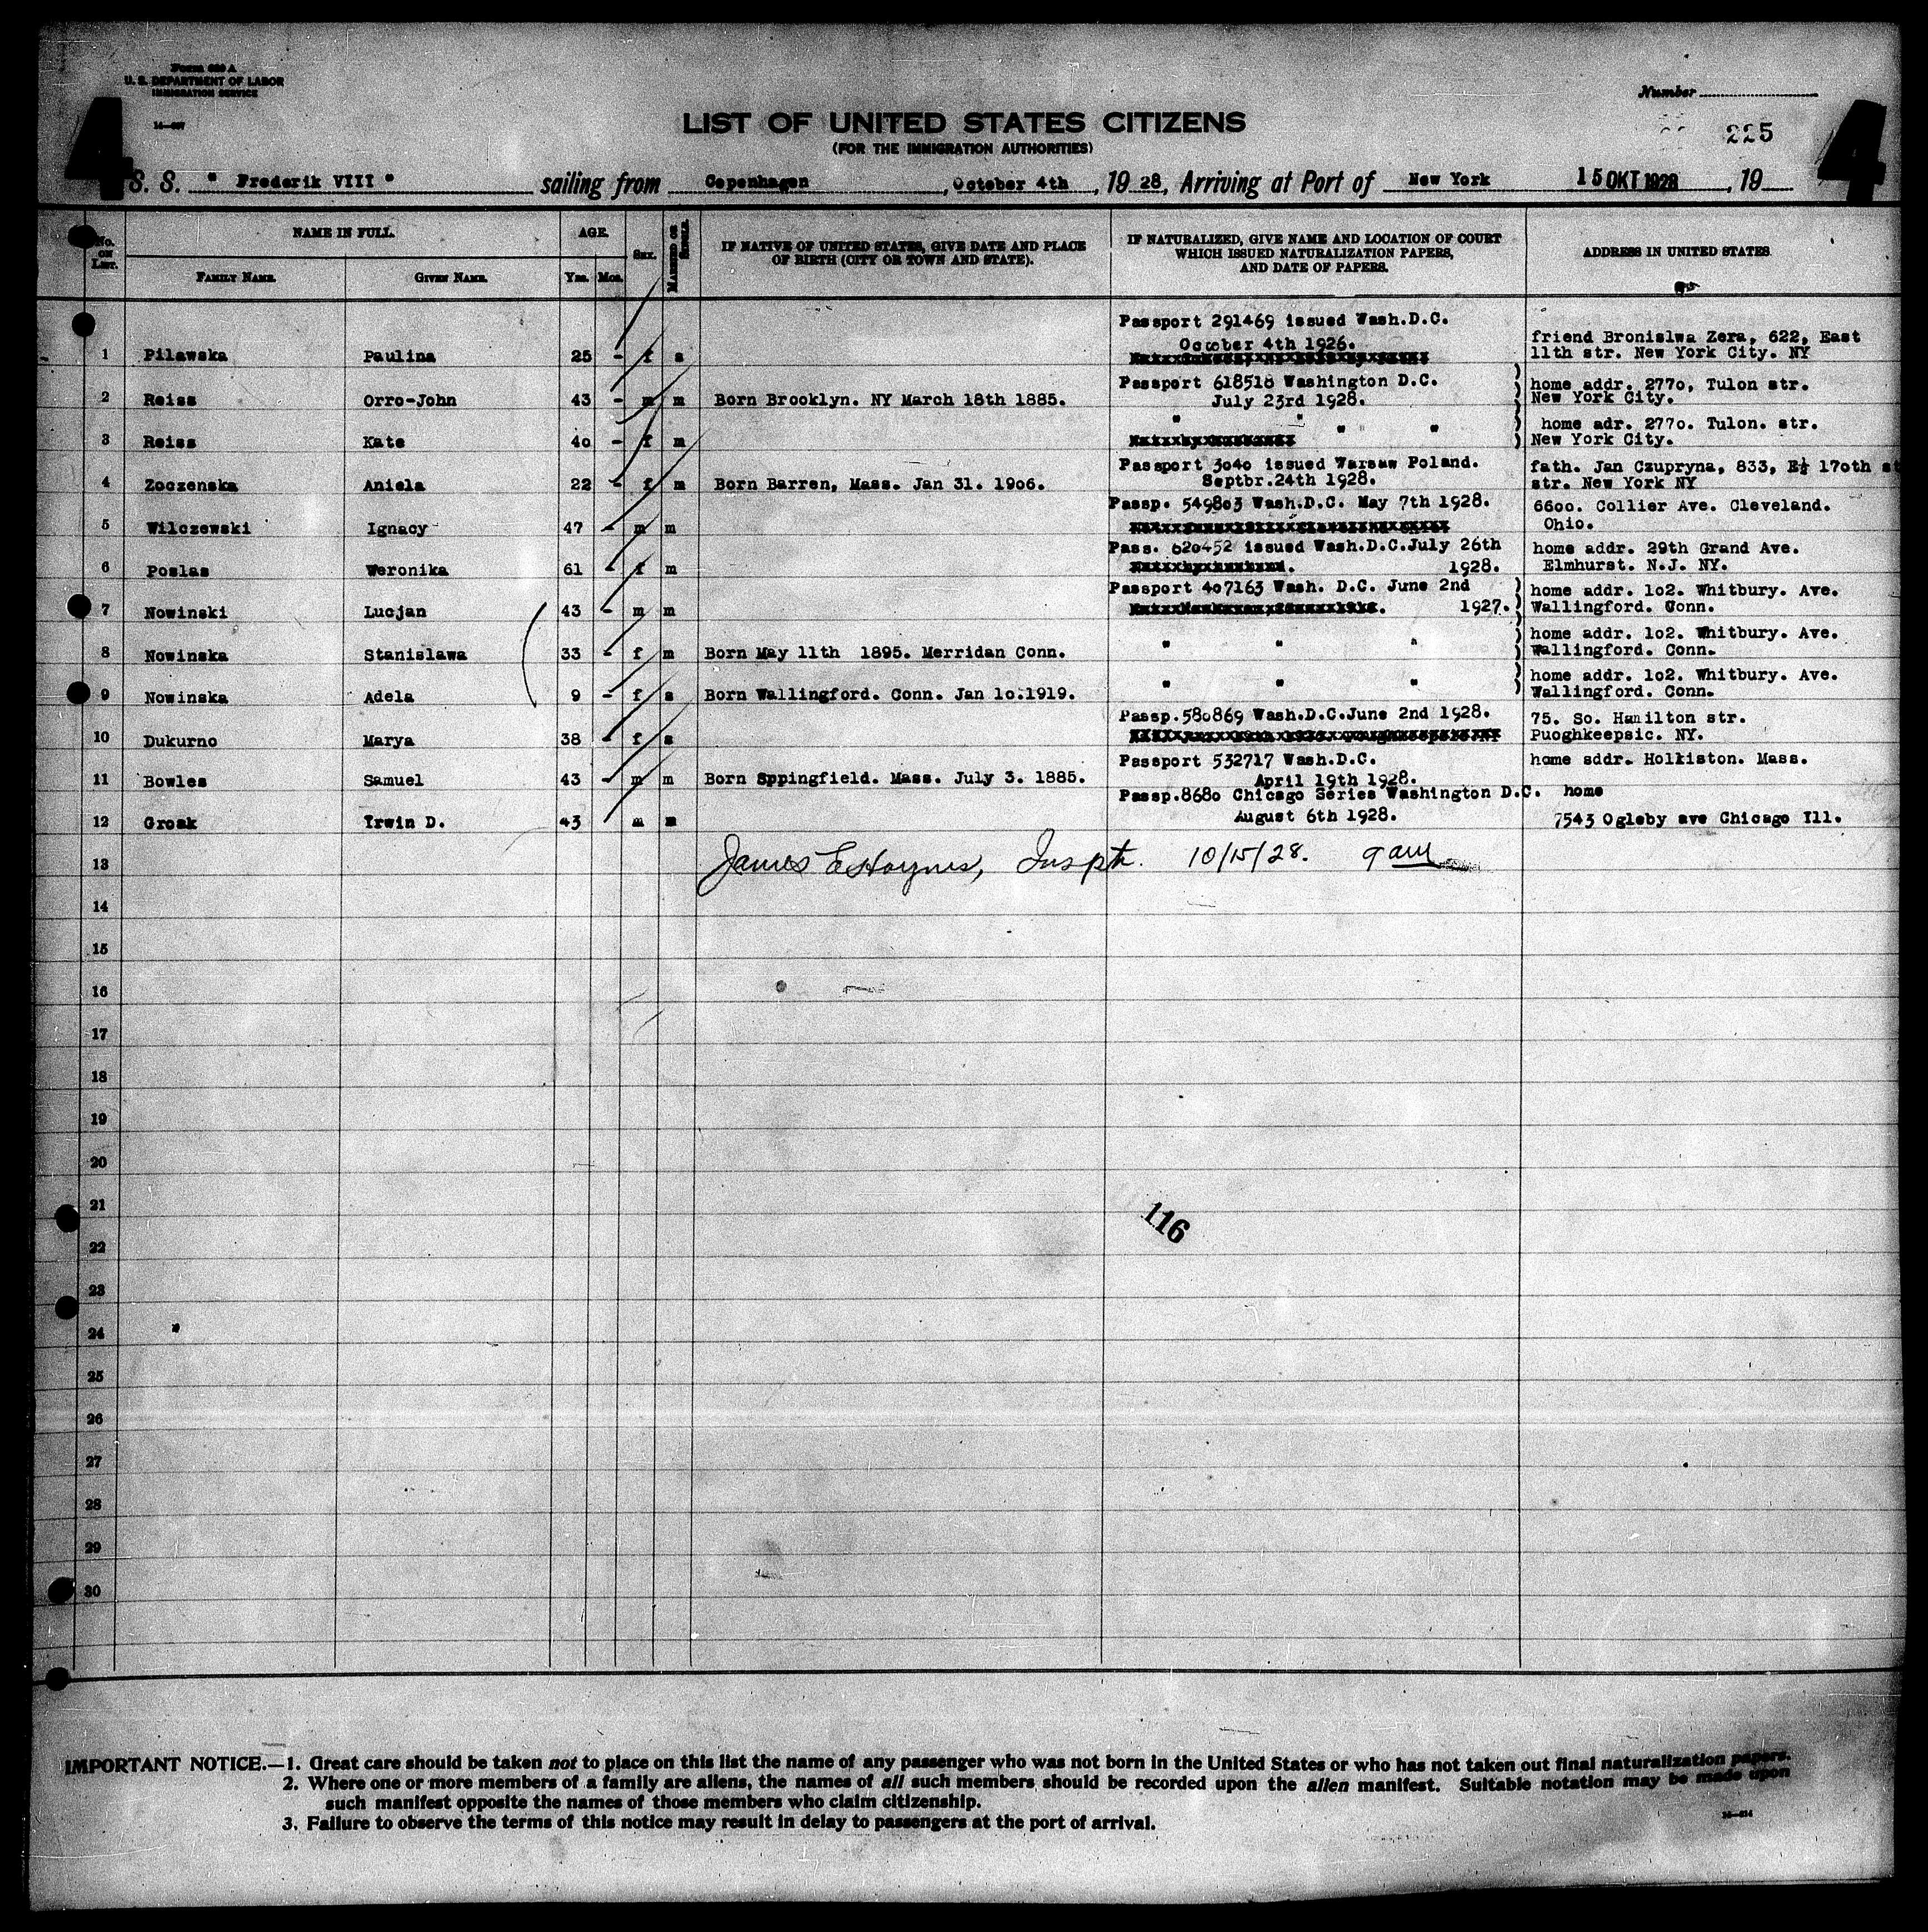 Form 630 A
U. S. DEPARTMENT OF LABOR
IMMIGRATION SERVICE
4
4
Number
225
LIST OF UNITED STATES CITIZENS
(FOR THE IMMIGRATION AUTHORITIES)
S. S. " Frederik VIII " sailing from Copenhagen, October 4th, 19 28, Arriving at Port of New York 15 OKT 1928, 19
No. ON LIST. NAME IN FULL. AGE. SEX. MARRIED OR SINGLE. IF NATIVE OF UNITED STATES, GIVE DATE AND PLACE OF BIRTH (CITY OR TOWN AND STATE). IF NATURALIZED, GIVE NAME AND LOCATION OF COURT WHICH ISSUED NATURALIZATION PAPERS, AND DATE OF PAPERS. ADDRESS IN UNITED STATES
FAMILY NAME. GIVEN NAME. YRS. MOS.
Passport 291469 issued Wash.D.C.
October 4th 1926.
friend Bronislwa Zera, 622, East
1 Pilawska Paulina 25 - f s 11th str. New York City. NY
Passport 618518 Washington D.C. home addr. 2770, Tulon str.
2 Reiss Orro-John 43 - m m Born Brooklyn. NY March 18th 1885. July 23rd 1928. New York City.
" " " " home adr. 2770. Tulon. str.
3 Reiss Kate 40 - f m New York City.
Passport 3040 issued Warsaw Poland. fath. Jan Czupryna, 833, E 170th st
4 Zoczenska Aniela 22 - f m Born Barren, Mass. Jan 31. 1906. Septbr.24th 1928. str. New York NY
Passp. 549803 Wash.D.C. May 7th 1928. 6600. Collier Ave. Cleveland.
5 Wilczewski Ignacy 47 - m m Ohio.
Pass. 620452 issued Wash.D.C.July 26th home addr. 29th Grand Ave.
6 Poslas Weronika 61 - f m 1928. Elmhurst. N.J. NY.
Passport 407163 Wash. D.C. June 2nd home addr. 102. Whitbury. Ave.
7 Nowinski Lucjan 43 - m m 1927. Wallingford. Conn.
" " " home addr. 102. Whitbury. Ave.
8 Nowinska Stanislawa 33 - f m Born May 11th 1895. Merridan Conn. Wallingford. Conn.
" " " home addr. 102. Whitbury. Ave.
9 Nowinska Adela 9 - f s Born Wallingford. Conn. Jan 10.1919. Wallingford. Conn.
Passp.580869 Wash.D.C.June 2nd 1928. 75. So. Hamilton str.
10 Dukurno Marya 38 - f s Puoghkeepsic. NY.
Passport 532717 Wash.D.C. home sddr. Holliston. Mass.
11 Bowles Samuel 43 - m m Born Sppingfield. Mass. July 3. 1885. April 19th 1928.
Passp.8680 Chicago Series Washington D.C. home
12 Groak Yrwin D. 43 m m August 6th 1928. 7543 Ogleby ave Chicago Ill.
13 James E Haynes, Insptr. 10/15/28. 9 am
14
15
16
17
18
19
20
21
116
22
23
24
25
26
27
28
29
30
IMPORTANT NOTICE.—1. Great care should be taken not to place on this list the name of any passenger who was not born in the United States or who has not taken out final naturalization papers.
2. Where one or more members of a family are aliens, the names of all such members should be recorded upon the alien manifest. Suitable notation may be made upon
such manifest opposite the names of those members who claim citizenship.
3. Failure to observe the terms of this notice may result in delay to passengers at the port of arrival.